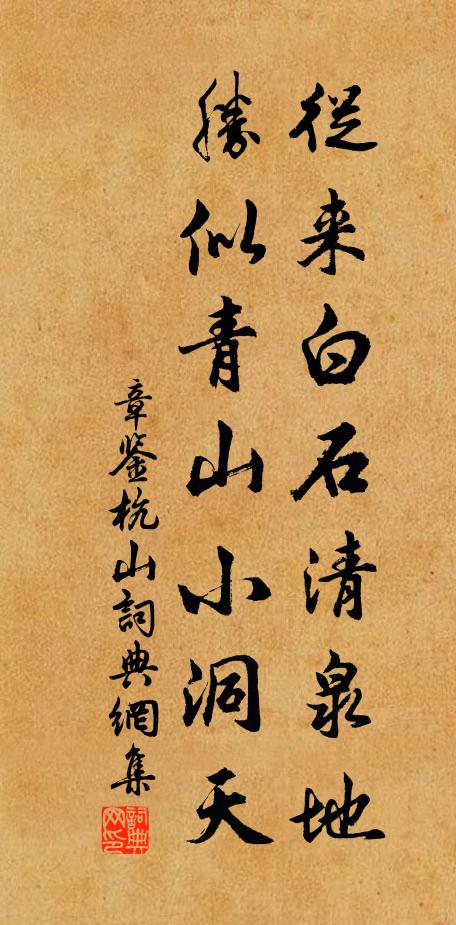 從来白石清泉地
勝似青山小洞天
章鉴杭山詞典網集
詞典网印